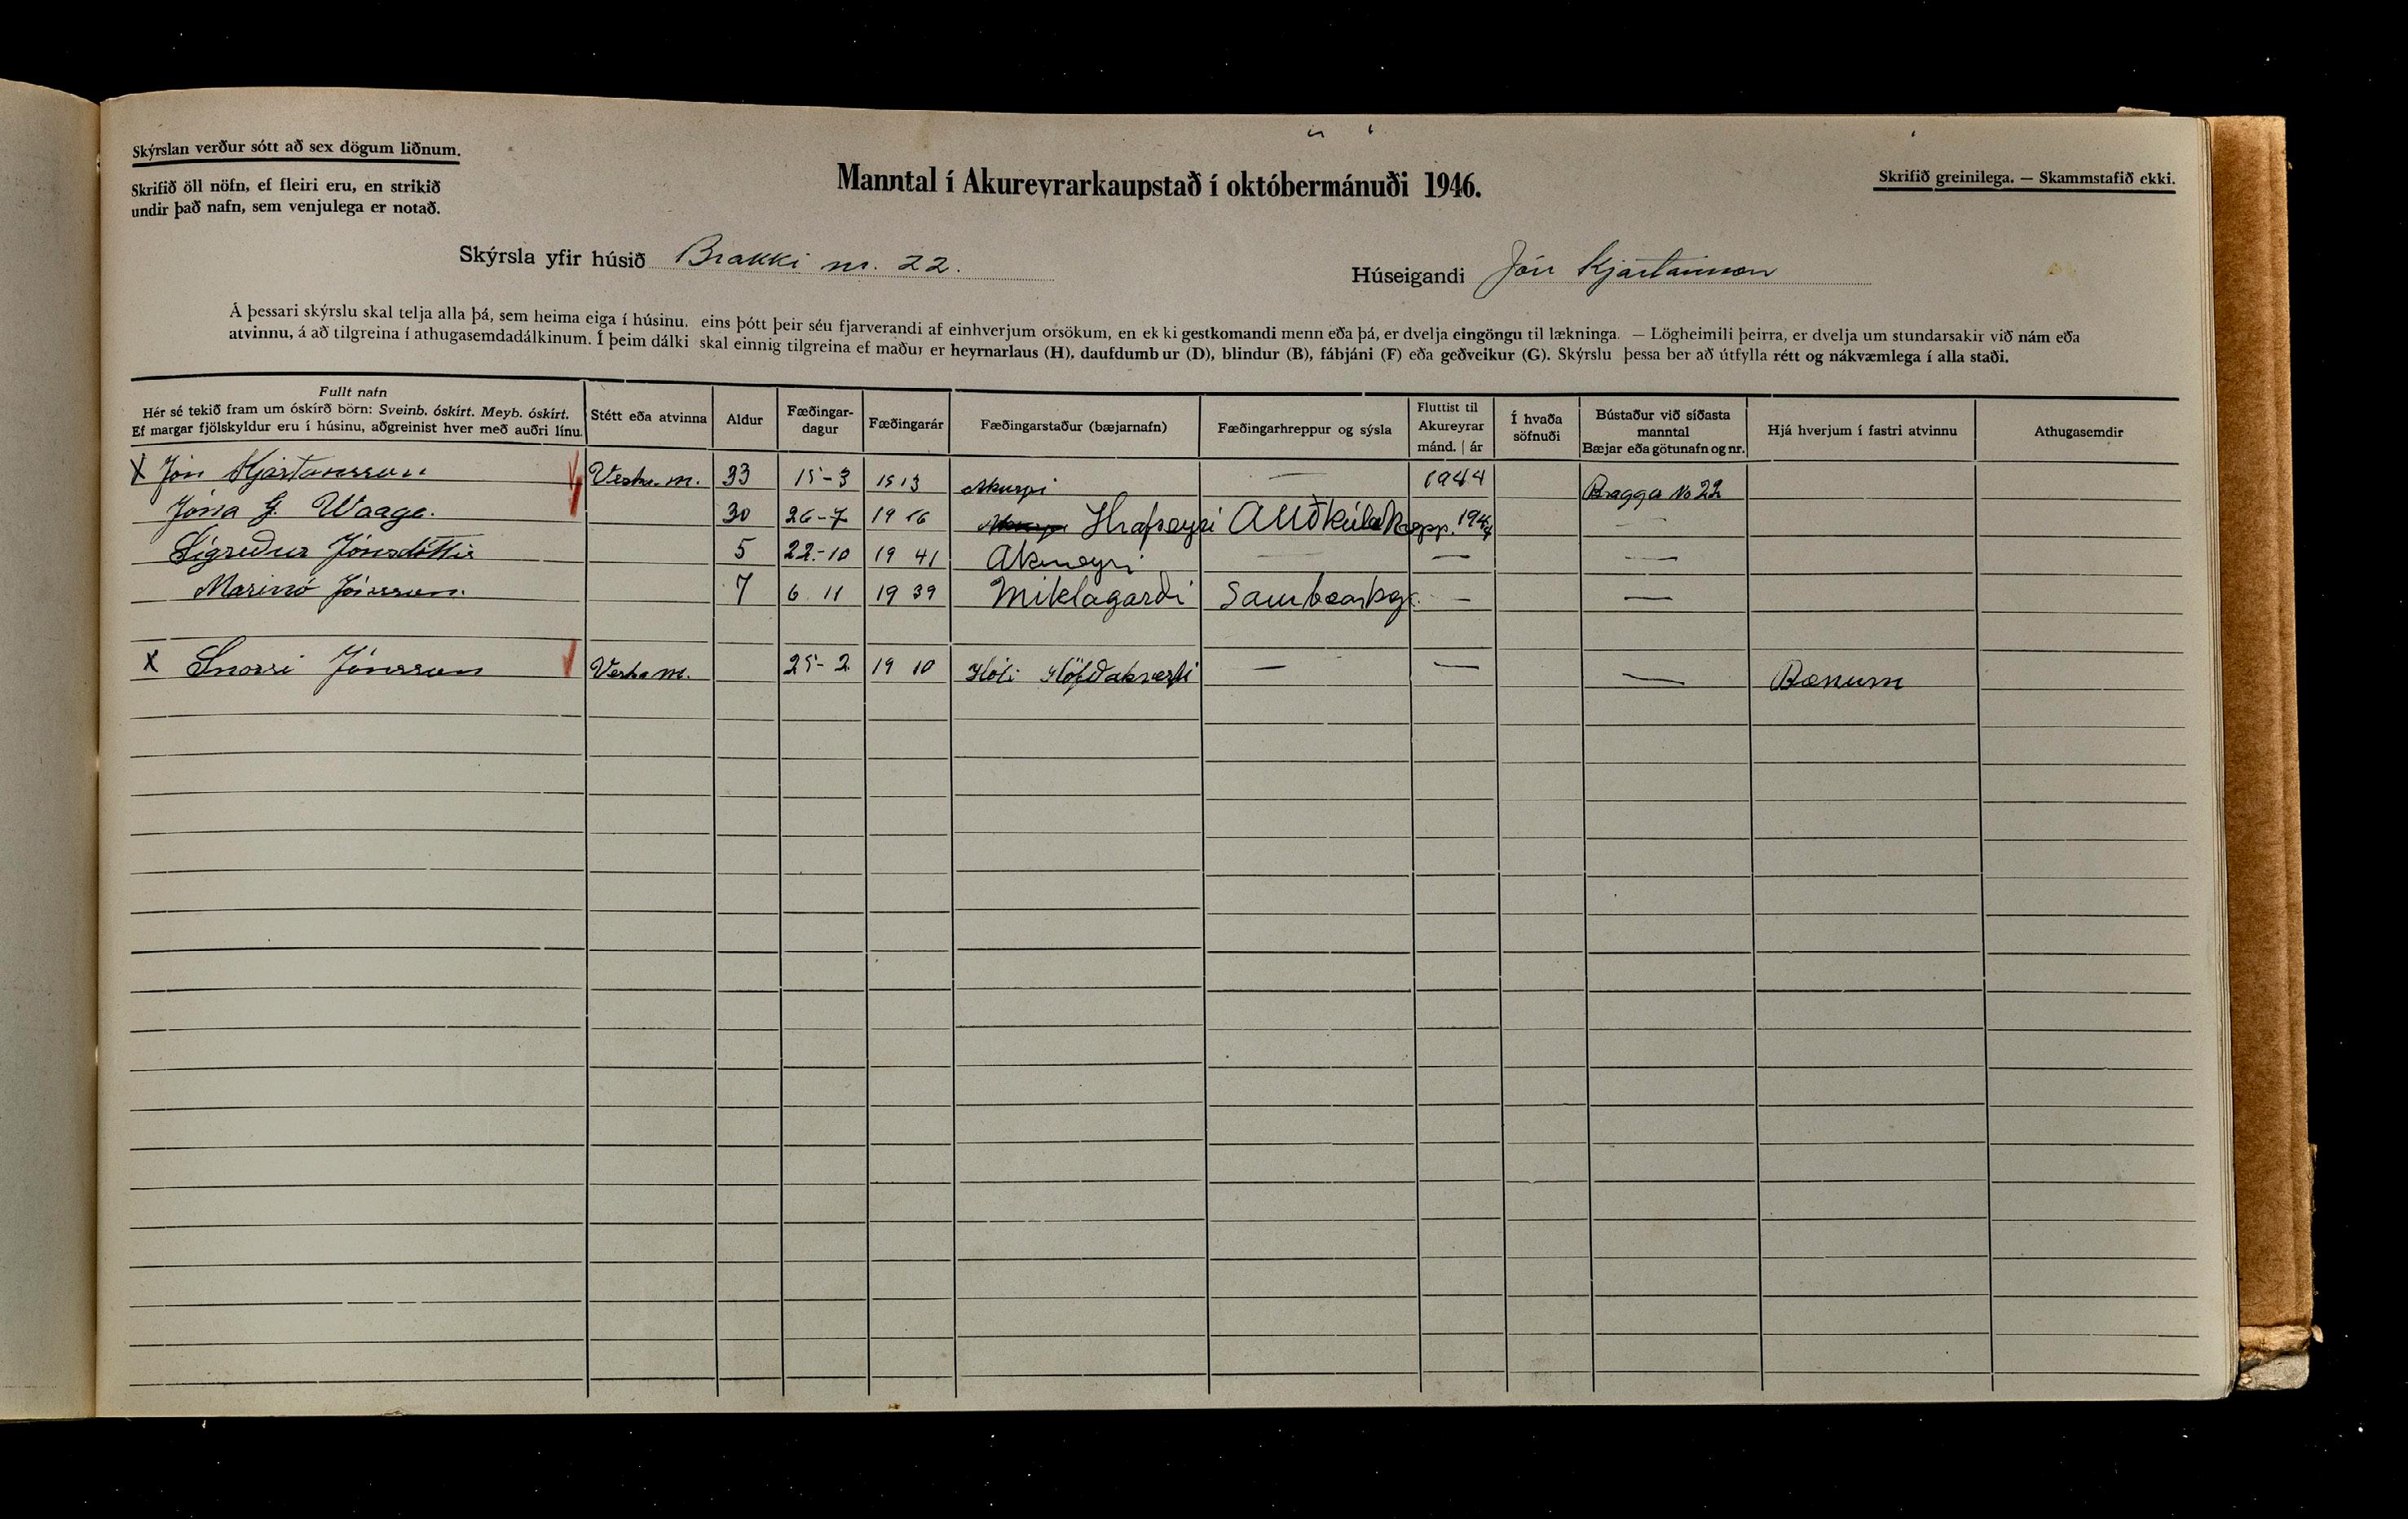 Skýrslan verður sótt að sex dögum liðnum.
Skrifið öll nöfn, ef fleiri eru, en strikið
undir það nafn, sem venjulega er notað.
Manntal í Akureyrarkaupstað í októbermánuði 1946.
Skrifið greinilega. — Skammstafið ekki.
Skýrsla yfir húsið Brakki nr. 22.
Húseigandi Jón Kjartansson
Á þessari skýrslu skal telja alla þá, sem heima eiga í húsinu. eins þótt þeir séu fjarverandi af einhverjum orsökum, en ekki gestkomandi menn eða þá, er dvelja eingöngu til lækninga. — Lögheimili þeirra, er dvelja um stundarsakir við nám eða
atvinnu, á að tilgreina í athugasemdadálkinum. Í þeim dálki skal einnig tilgreina ef maður er heyrnarlaus (H), daufdumbur (D), blindur (B), fábjáni (F) eða geðveikur (G). Skýrslu þessa ber að útfylla rétt og nákvæmlega í alla staði.
Fullt nafn
Hér sé tekið fram um óskírð börn: Sveinb. óskírt. Meyb. óskírt.
Ef margar fjölskyldur eru í húsinu, aðgreinist hver með auðri línu.
Stétt eða atvinna
Aldur
Fæðingar-
dagur
Fæðingarár
Fæðingarstaður (bæjarnafn)
Fæðingarhreppur og sýsla
Fluttist til
Akureyrar
mánd. | ár
Í hvaða
söfnuði
Bústaður við síðasta
manntal
Bæjar eða götunafn og nr.
Hjá hverjum í fastri atvinnu
Athugasemdir
X Jón Kjartansson Verka m. 33 15-3 1913 Akureyri — 1944 Bragga No 22
Jóna G. Waage. 30 26-7 1916 Hrafseyri Auðkúluhrepp. 1944 —
Sigríður Jónsdóttir 5 22-10 1941 Akureyri — — —
Marinó Jónsson. 7 6 11 1939 Miklagarði Saurbæarhr. — —
X Snorri Jónsson Verka m. 25-2 1910 Hóli Höfðahverfi — — — Bænum